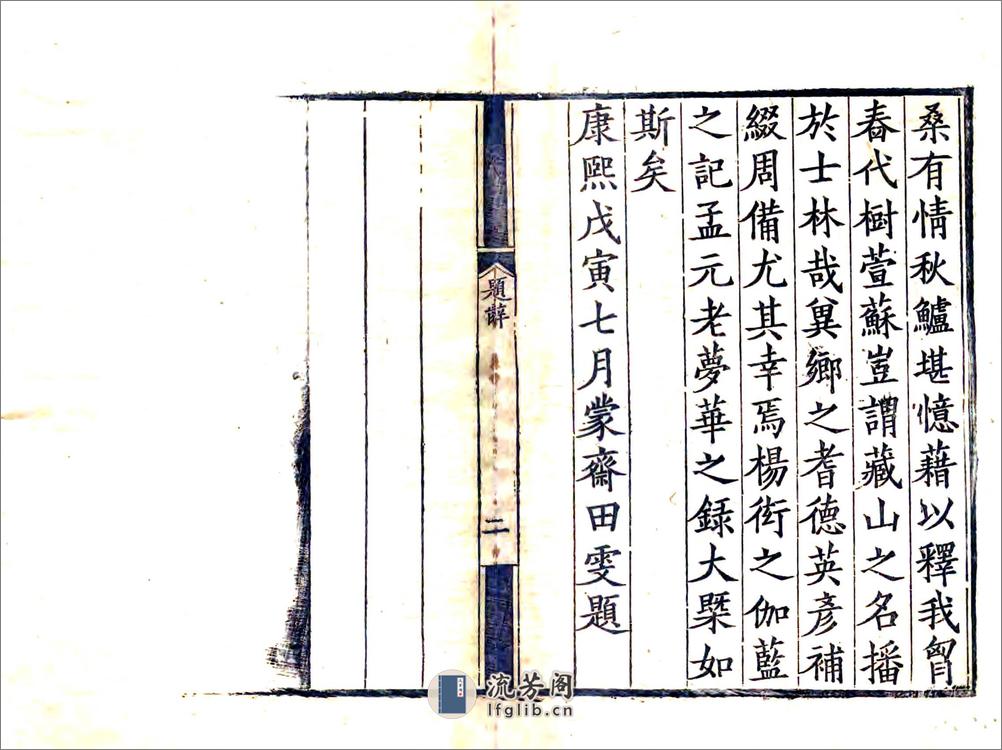 桑有情秋鱸堪憶藉以釋我胷
春代樹萱蘇豈謂藏山之名播
於士林哉冀鄉之耆德英彥補
綴周備尤其幸焉楊衒之伽藍
之記孟元老夢華之録大槩如
斯矣
康熙戊寅七月蒙齋田雯題
題辭
二
流芳阁
lfglib.cn